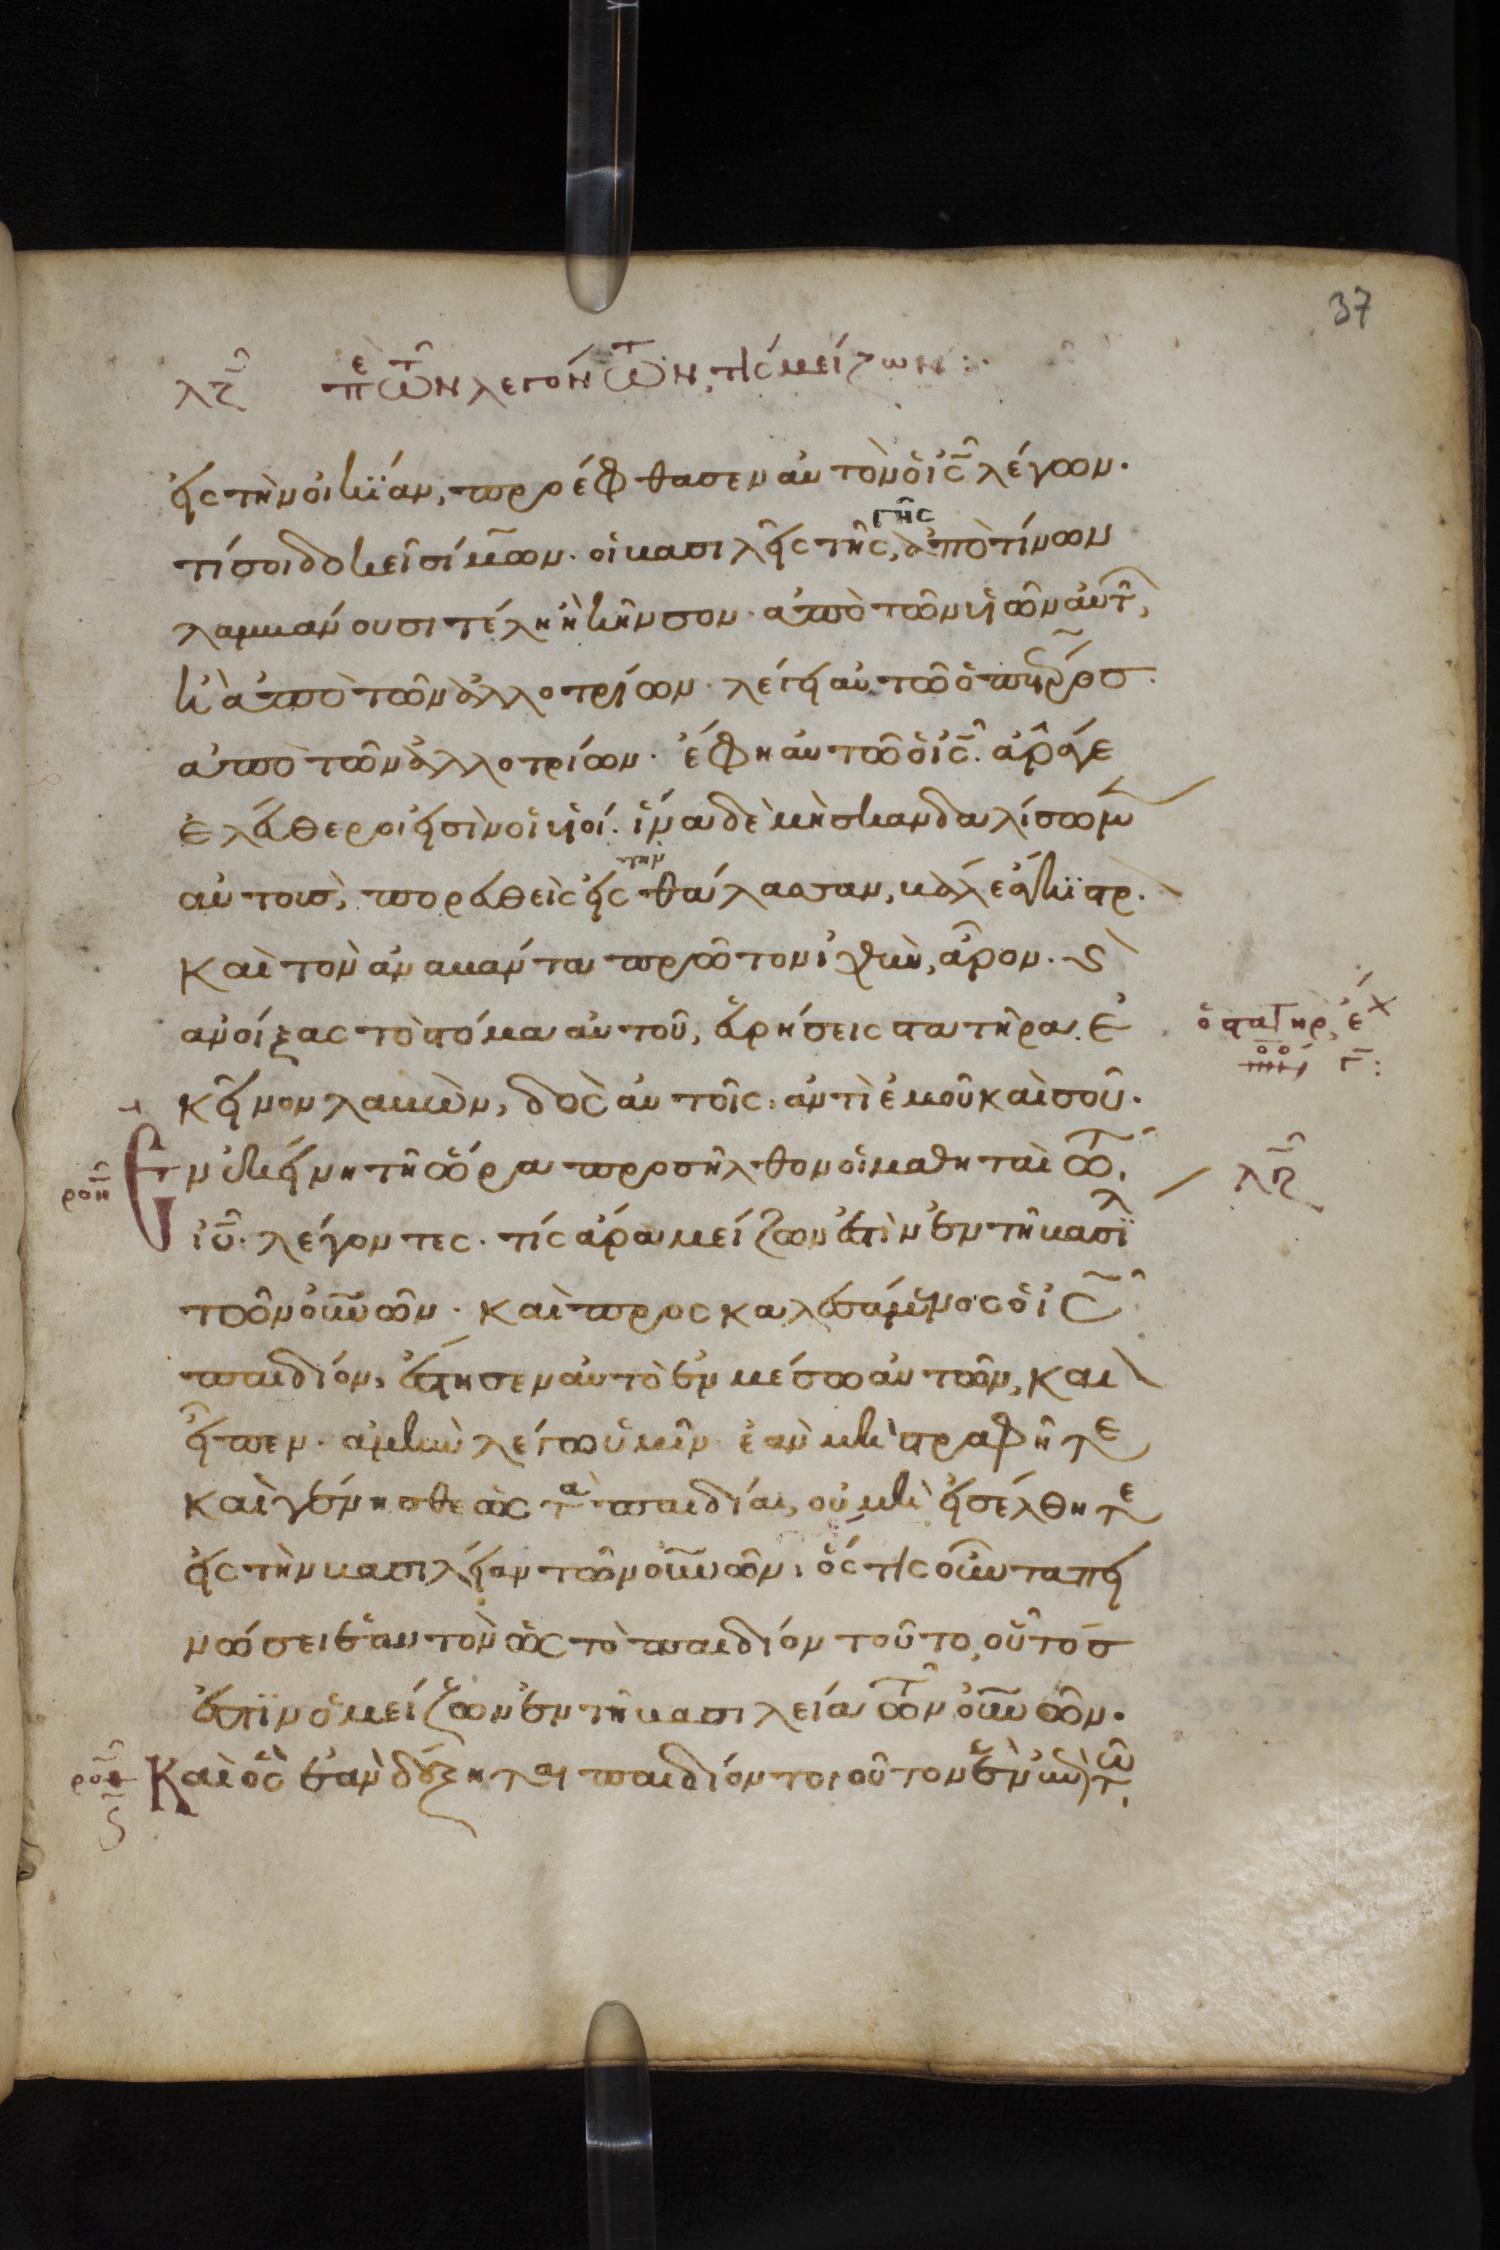 37
λζ πε των λεγόντων, τίς μείζων :·
εἰς τὴν οἰκΐαν, προέφθασεν αὐτὸν ὁ ἰς λέγων·
τί σοι δοκεῖ σίμων· οἱ βασιλεῖς τῆς γῆς, ἀπὸ τίνων
λαμβάνουσι τέλη ἢ κῆνσον· ἀπὸ τῶν υἱῶν αὐτ,
κὶ ἀπὸ τῶν ἀλλοτρίων· λέγει αὐτῶ ὁ πετρος·
ἀπὸ τῶν ἀλλοτρίων· ἔφη αὐτῶ ὁ ἰς· ἄραγε
ἐλεύθεροι εἰσὶν οἱ υἱοί· ἵνα δὲ μὴ σκανδαλίσωμεν
αὐτους, πορευθεὶς εἰς τὴν θάλασσαν, βάλε ἄγκϊστρ·
καὶ τὸν ἀναβάντα πρῶτον ἰχθὺν, ἆρον· ϗ
ἀνοίξας τὸ στόμα αὐτοῦ, εὑρήσεις στατῆρα· ἐ
κεῖνον λαβὼν, δὸς αὐτοῖς· ἀντὶ ἐμοῦ καὶ σοῦ·
ὁ στατηρ, ἔχ
γ :
ροη Ἐν ἐκείνη τῆ ὥρα προσῆλθον οἱ μαθηταὶ τω,
λη
ἰυ· λέγοντες· τίς ἄρα μείζων ἐστὶν ἐν τῆ βασιλ
τῶν οὐνων· καὶ προσκαλεσάμενος ὁ ἰς
παιδίον, ἔστησεν αὐτὸ ἐν μέσω αὐτῶν, και
εἶπεν· ἀμὴν λέγω ὑμῖν ἐὰν μὴ στραφῆτε
καὶ γένησθε ὡς τὰ παιδία, οὐ μὴ εἰσέλθητε
εἰς τὴν βασιλείαν τῶν οὐνων· ὅς τις οὖν ταπει
νώσει ἑαυτὸν ὡς τὸ παιδίον τοῦτο, οὗτος
ἐστΐν ὁ μείζων ἐν τῆ βασιλεία των οὐνων·
Καὶ ὃς ἐὰν δέξηται παιδίον τοιοῦτον ἓν ἐπὶ τω